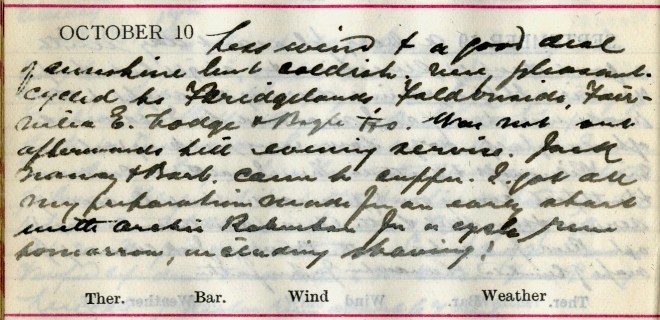 OCTOBER 10 Less wind & a good deal
of sunshine but coldish. Very pleasant.
Cycled to Faldonside, Fair-
nilee E. Lodge & Ho. Was not out
afterwards till evening service. Jack
& Barb. came to supper. I got all
my preparation made for an early start
with Archie for a cycle run
tomorrow, including shaving!
Ther. Bar. Wind Weather.